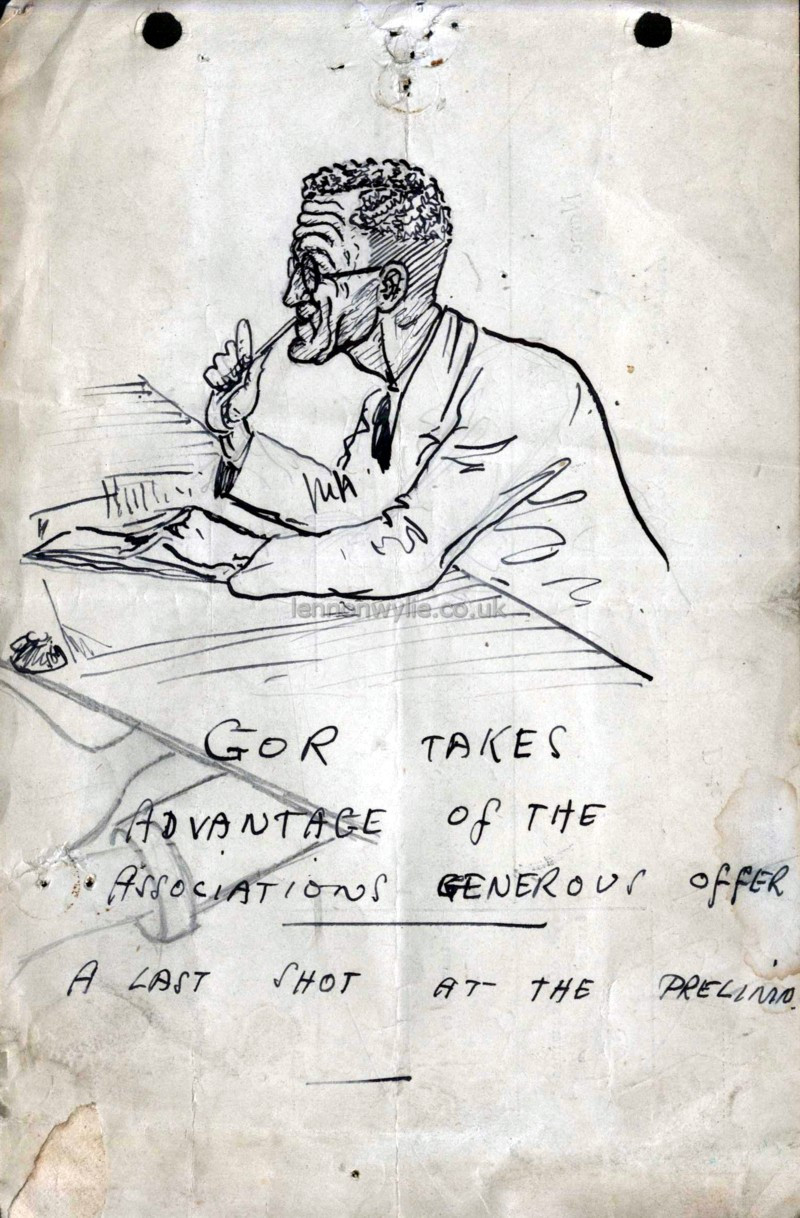 lennonwylie.co.uk
GOR TAKES
ADVANTAGE Of THE
ASSOCIATIONS GENEROUS OffER
A LAST SHOT AT THE